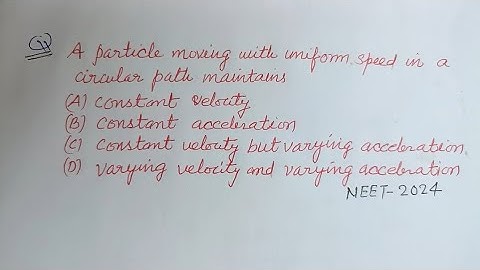 Q A particle moving with uniform speed in a
circular path maintains
(A) Constant velocity
(B) Constant acceleration
(C) Constant velocity but varying acceleration.
(D) Varying velocity and varying acceleration
NEET-2024